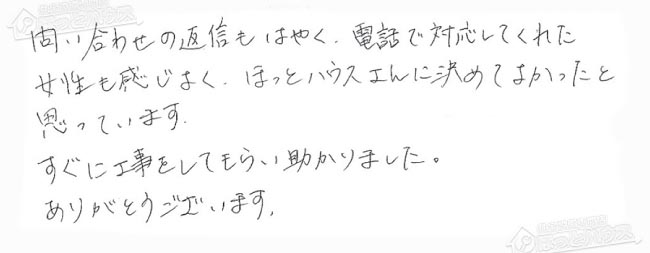 問い合わせの返信もはやく、電話で対応してくれた
女性も感じよく、ほっとハウスさんに決めてよかったと
思っています。
すぐに工事をしてもらい助かりました。
ありがとうございます。